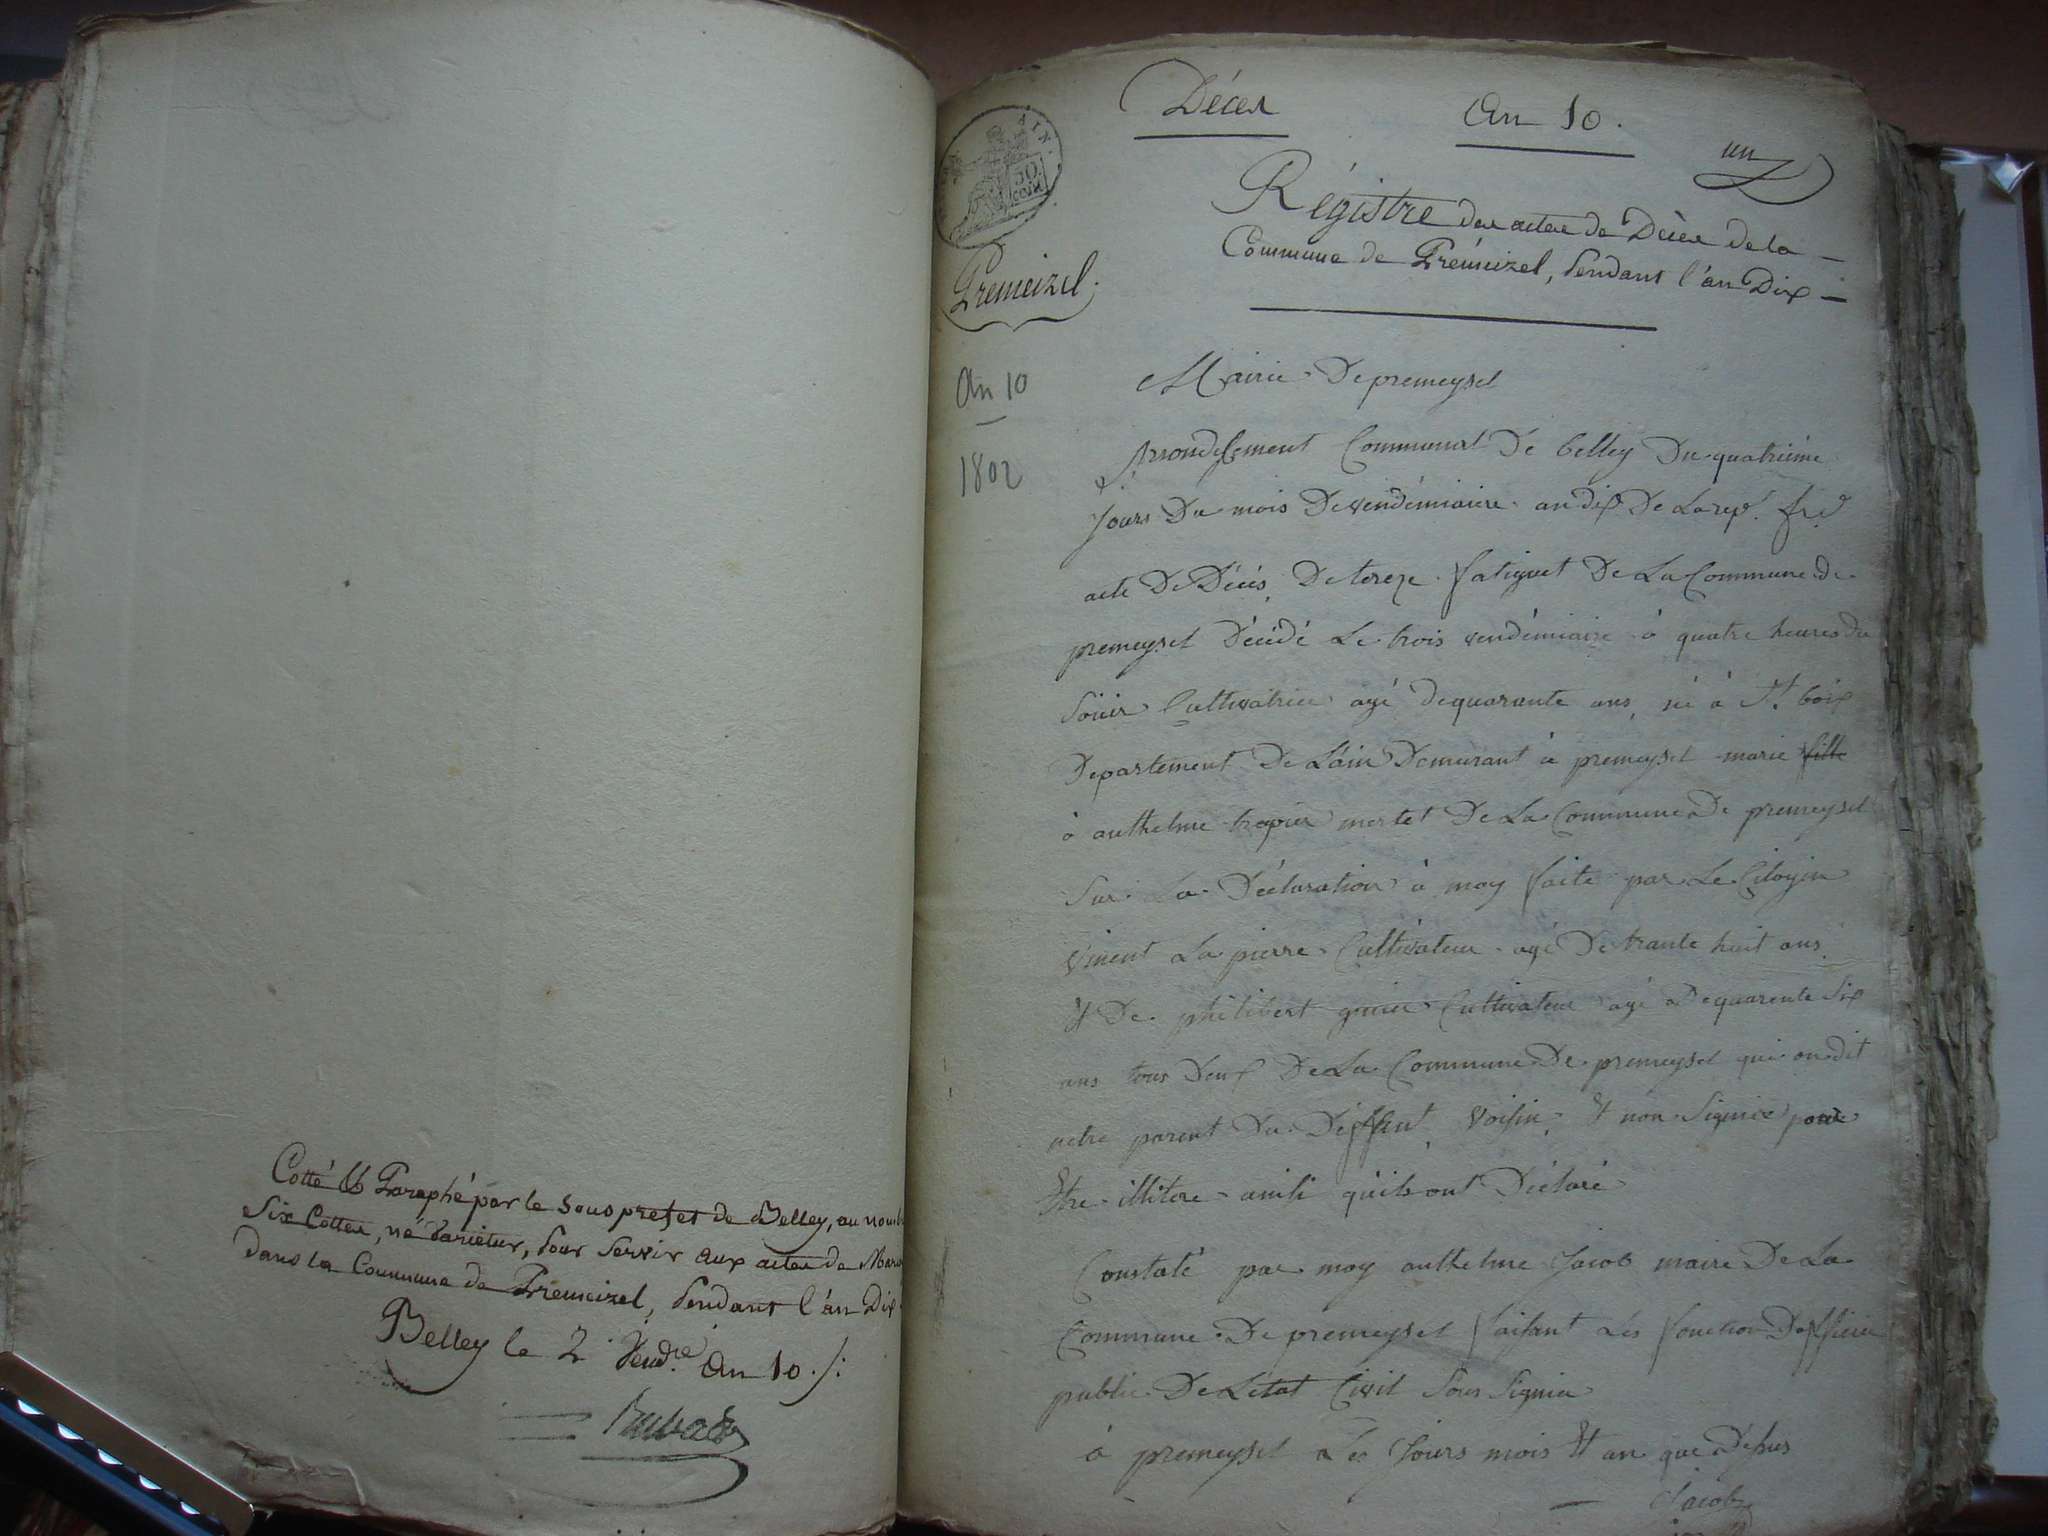 Cotté & Paraphé par le sous prefet de Belley, au nomb
Six Cottes, né varietur, pour servir aux actes de Mar
dans la Commune de Prémeizel, pendant l'an Dix
Belley le 2 Vend.re An 10 ./.
Décès An 10.
un
AIN.
50
CENT
Prémeizel.
Régistre des actes de Décès de la
Commune de Prémeizel, pendant l'an Dix
An 10
1802
Mairie De premeysel
Arrondissement Communal De belley Du quatrième
Jours Du mois De vendémiaire an dix De La rep. fr.
acte De Décès De tereze fatiguet De La Commune de
premeysel Décédé Le trois vendémiaire à quatre heures du
Soiir Cultivatrice agé De quarante ans, né à St boix
Departement De L'ain Demurant à premeysel marié fille
à anthelme mertet De La Commune De premeysel
Sur La Déclaration à moy faite par Le Citoyin
vinent La pierre Cultivateur agé De trante huit ans
Et De philibert Cultivateur agé De quarente Six
ans tous Deux De La Commune De premeysel qui on dit
aetre parent Du Déffunt voisin, Et non Signié pour
Etre illitere ainsi quils ont Déclaré
Constaté par moy anthelme Jacob maire De La
Commune De premeysel faisant Les fonction Dofficier
public De Létat Civil Sous Signié
à premeysel Les Jours mois Et an que Désus
Jacob